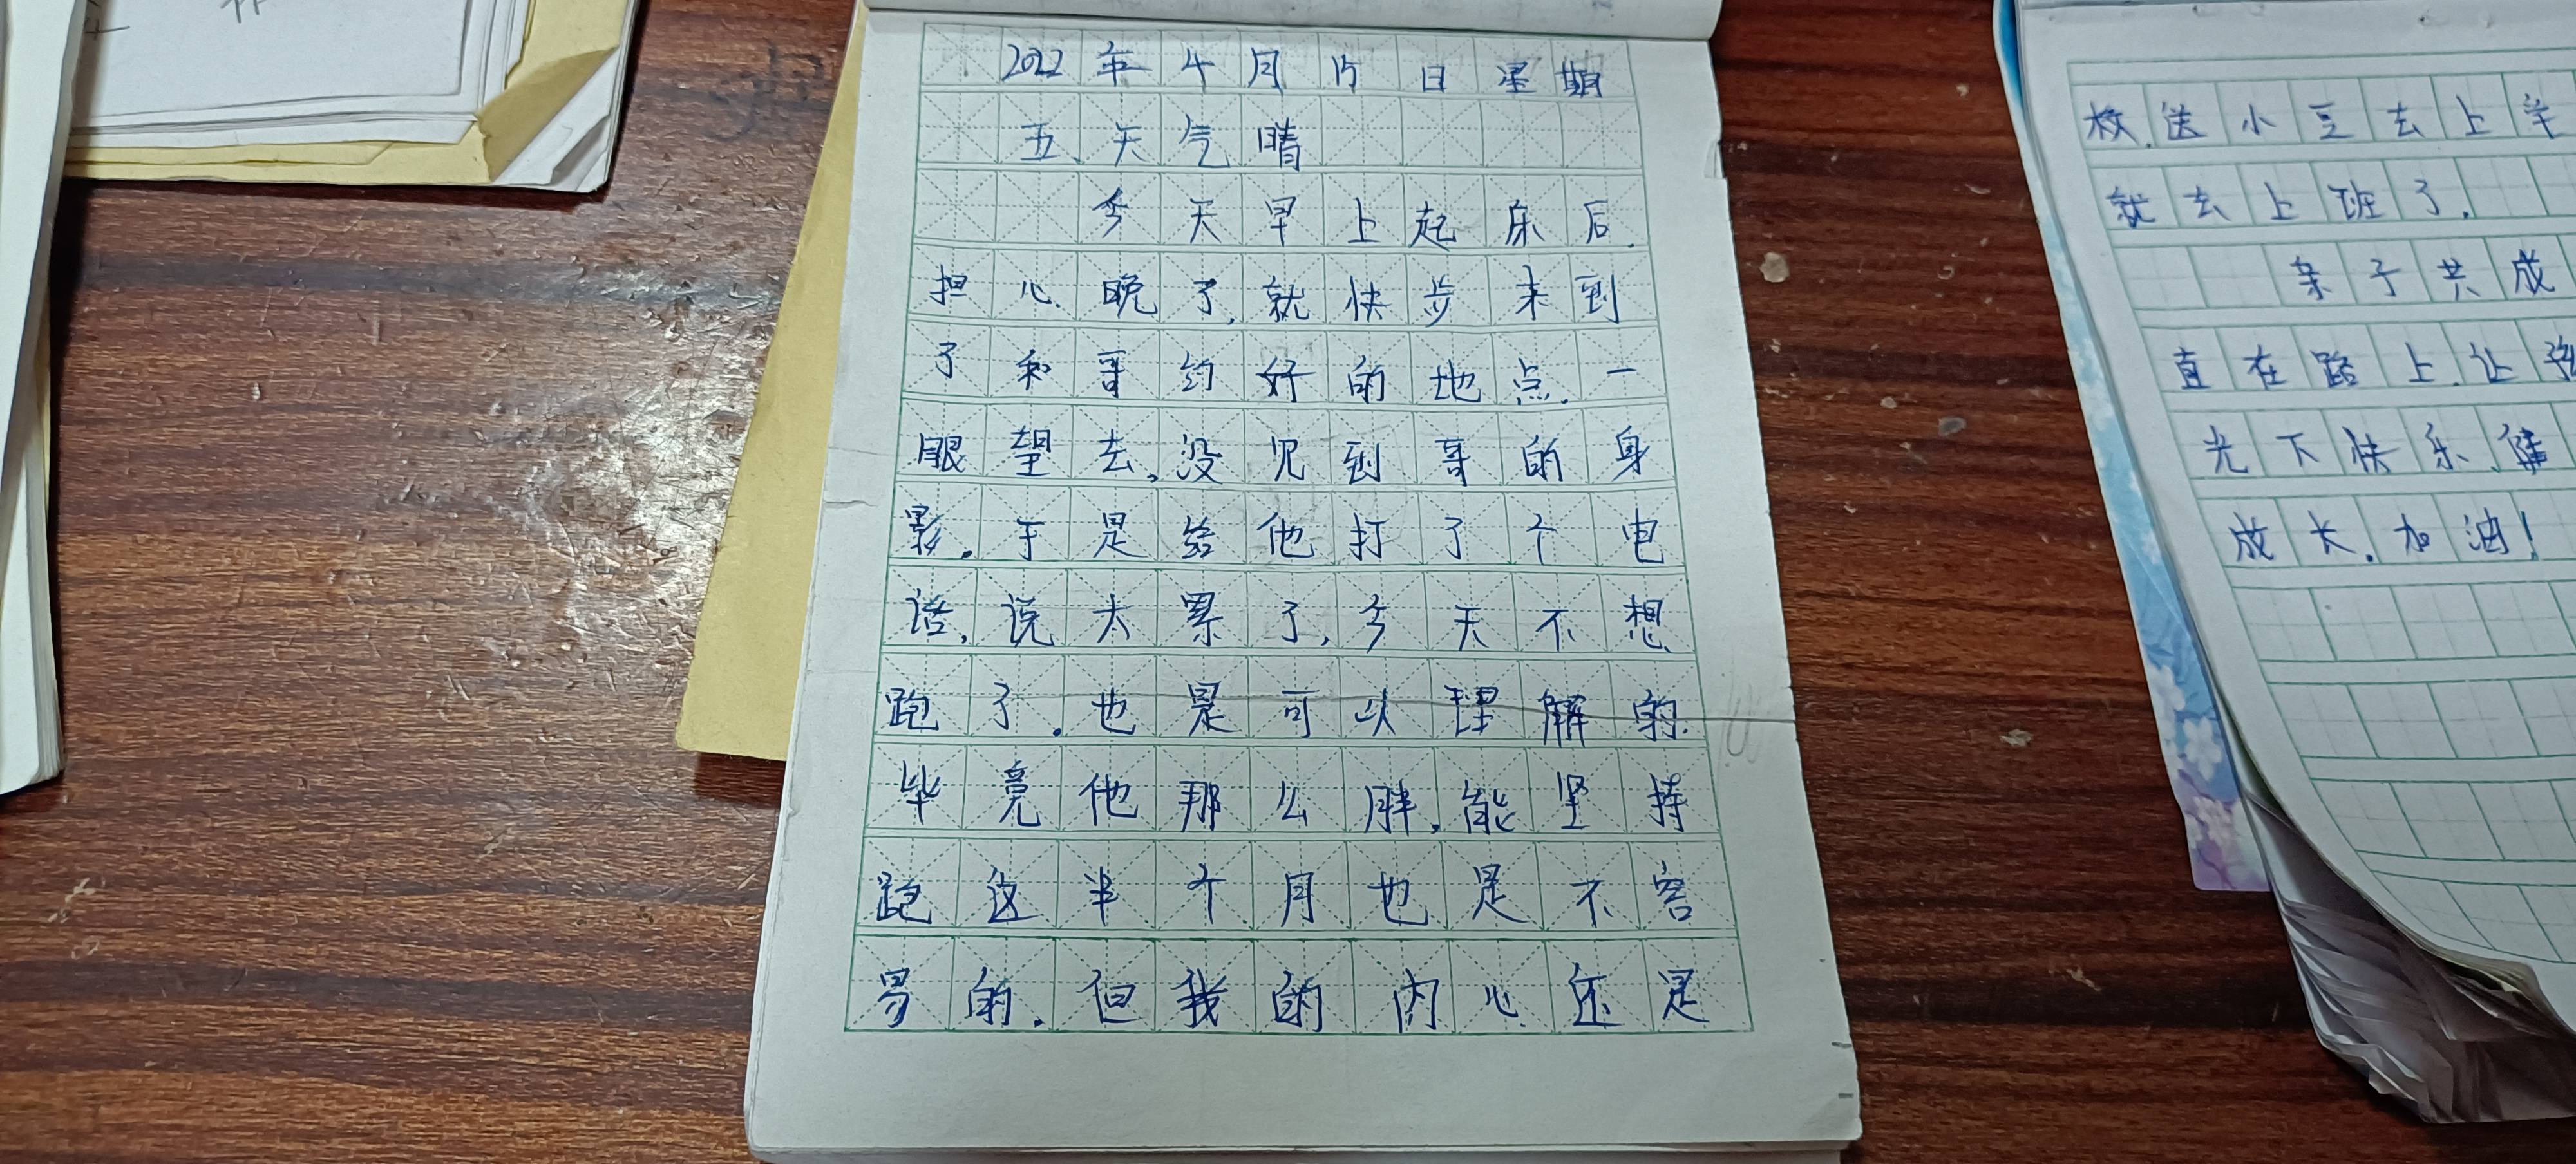 2022年4月15日星期
五天气晴
今天早上起床后.
担心晚了,就快步来到
了和哥约好的地点.一
眼望去,没见到哥的身
影.于是给他打了个电
话,说太累了,今天不想
跑了.也是可以理解的.
毕竟他那么胖,能坚持
跑这半个月也是不容
易的.但我的内心还是
校.送小豆去上学
就去上班了.
亲子共成
直在路上.让
光下快乐.健
成长.加油!